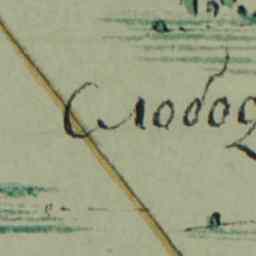 Слобод